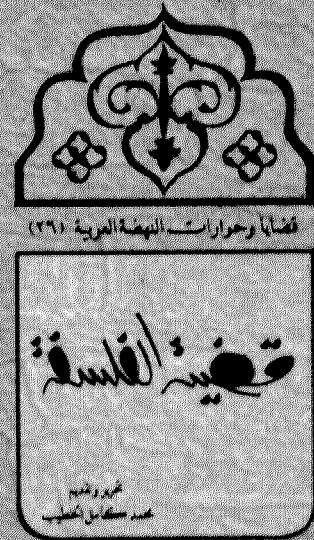 قضايا وحوارات النهضة العربية (٢٦)
قضية الفلسفة
تحرير وتقديم
محمد كامل الخطيب